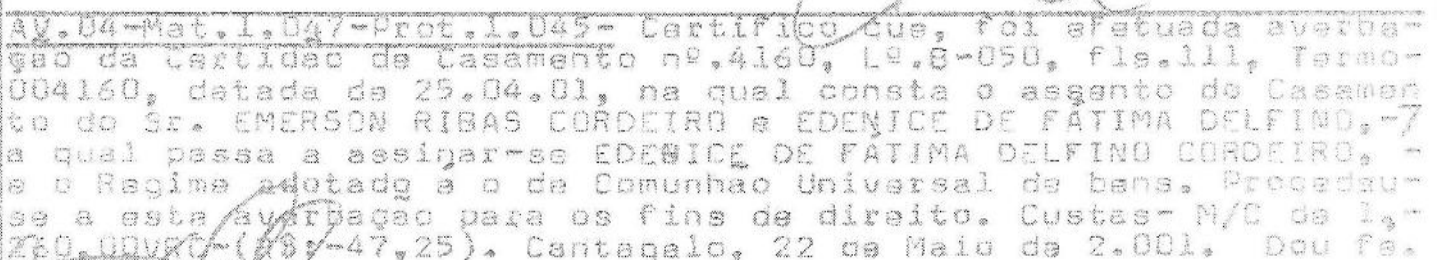 AV.04-Mat.1.047-Prot.1.045- Certifico que, foi efetuada averba-
ção da Certidão de Casamento nº.4160, Lº.B-050, fls.111, Termo-
004160, datada de 25.04.01, na qual consta o assento do Casamen
to do Sr. EMERSON RIBAS CORDEIRO e EDENICE DE FÁTIMA DELFINO,-
a qual passa a assinar-se EDENICE DE FÁTIMA DELFINO CORDEIRO, -
e o Regime adotado é o de Comunhao Universal de bens. Procedeu-
se a esta averbaçao para os fins de direito. Custas- M/C de 1,-
260,00VRC-(R$:-47,25). Cantagalo, 22 de Maio de 2.001. Dou fe.